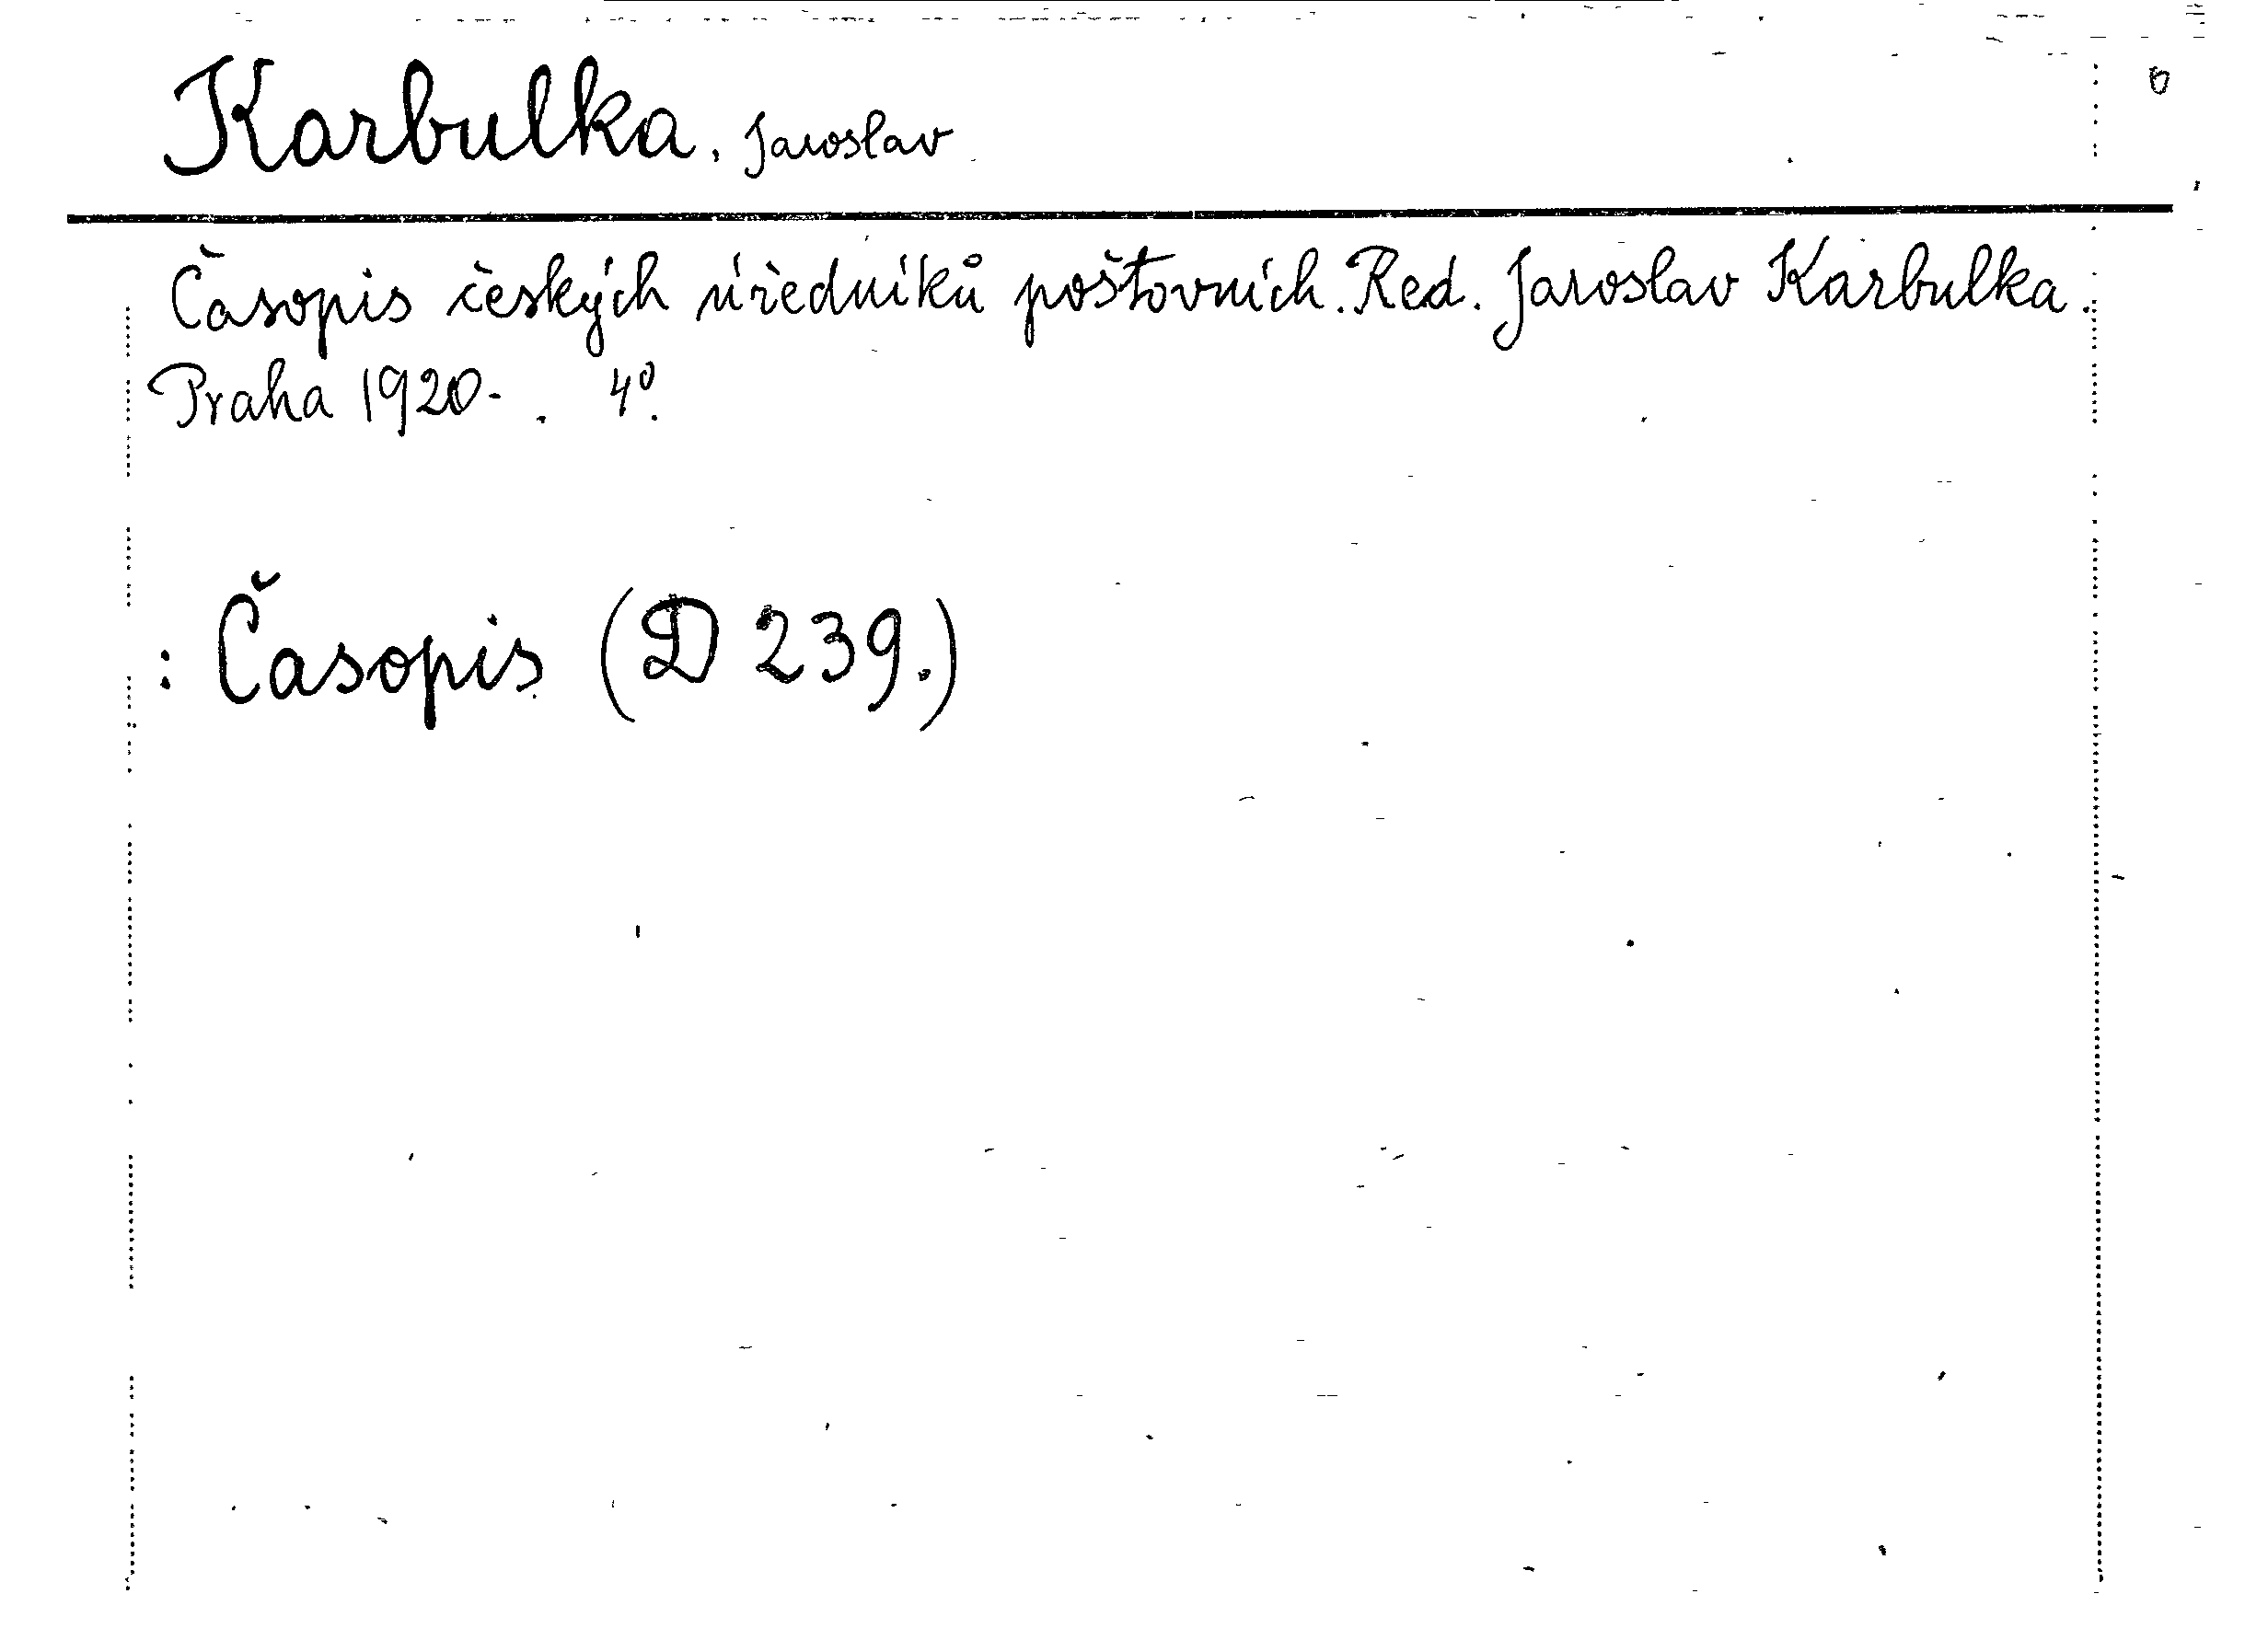 Karbulka, Jaroslav
Časopis českých úředníků poštovních. Red. Jaroslav Karbulka.
Praha 1920- . 4°.
: Časopis (D 239.)